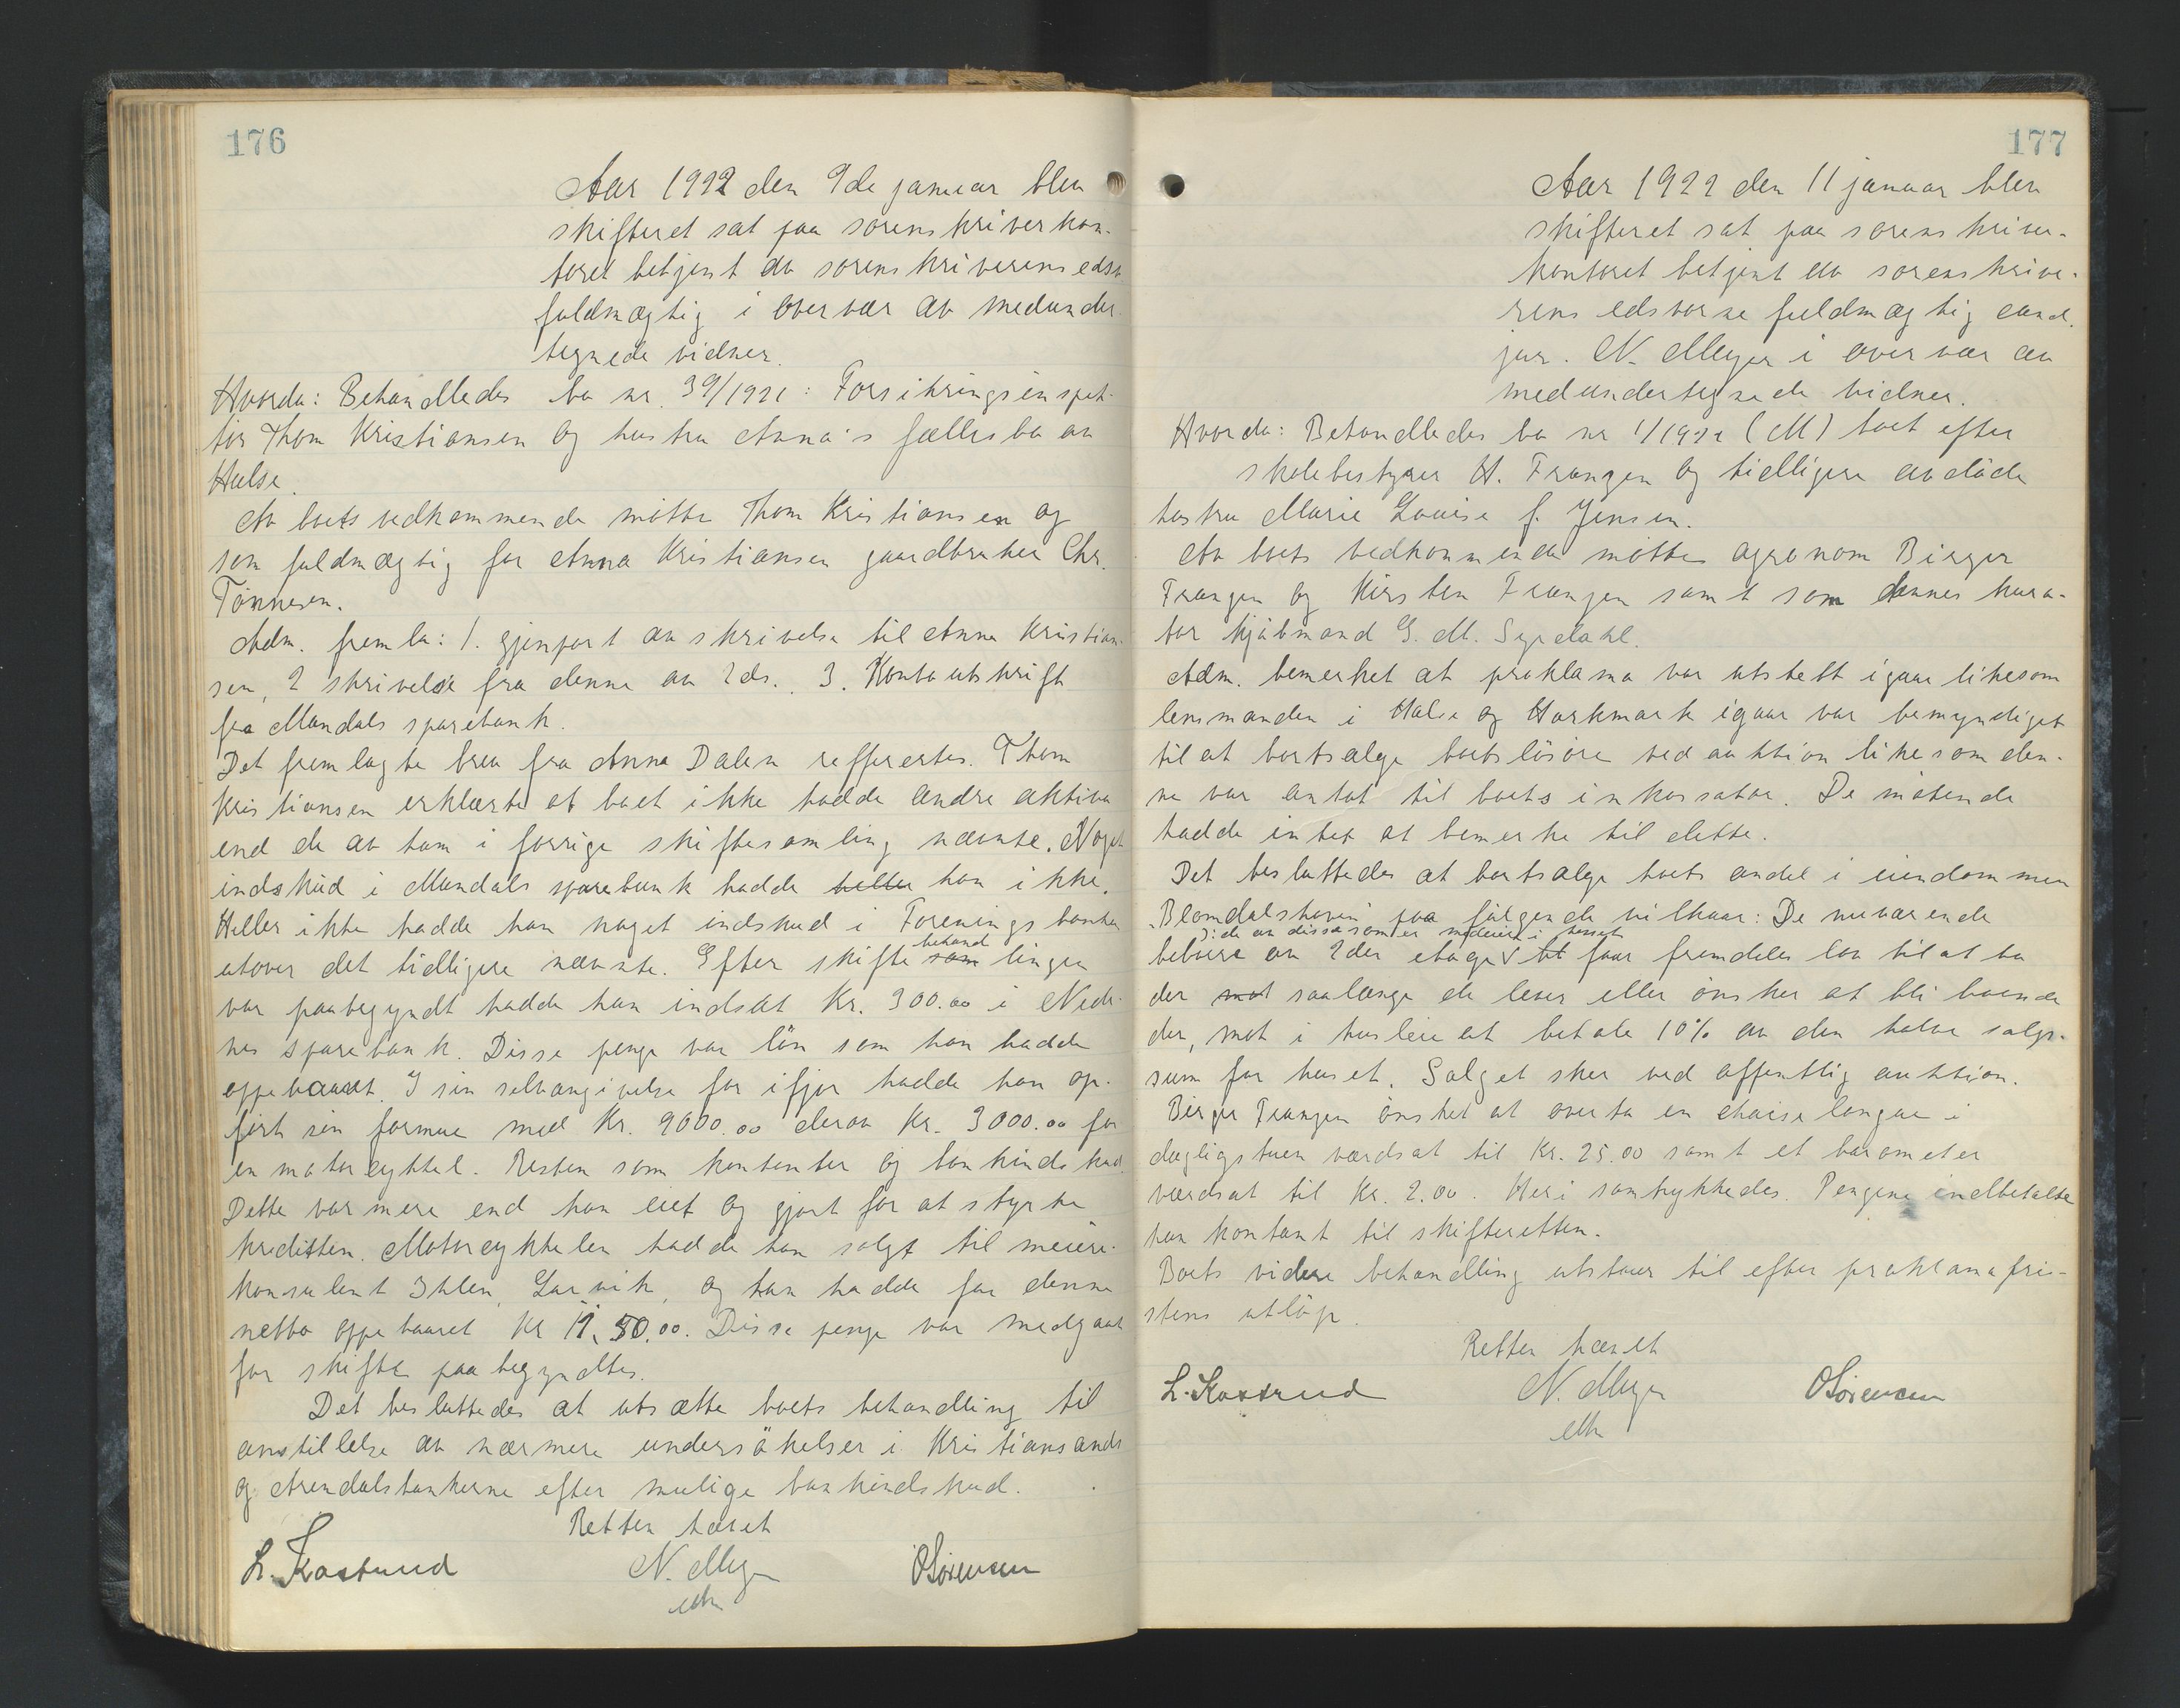 176
Aar 1922 den 9de januar blev
skifteret sat paa sorenskriverkon-
toret betjent av sorenskriverens edsv.
fuldmægtig i overvær av medunder-
tegnede vidner.
Hvorda: Behandledes bo nr. 39/1921: Forsikringsinspek-
tør Thom Kristiansen og hustru Anna's fællesbo av
Halse.
Av boets vedkommende møtte Thom Kristiansen og
som fuldmægtig for Anna Kristiansen gaardbruker Chr.
Tönnesen.
Adm. fremla: 1. gjenpart av skrivelse til Anna Kristian-
sen, 2 skrivelse fra denne av 2ds. 3. Kontoutskrift
fra Mandals sparebank.
Det fremlagte brev fra Anna Dalen refferertes. Thom
Kristiansen erklærte at boet ikke hadde andre aktiva
end de av ham i forrige skiftesamling nævnte. Noget
indskud i Mandals sparebank hadde heller han ikke.
Heller ikke hadde han noget indskud i Foreningsbanken
utover det tidligere nævnte. Efter skifte som behand lingen
var paabegyndt hadde han indsat Kr. 300.00 i Nede-
nes sparebank. Disse penge var lön som han hadde
oppebaaret. I sin selvangivelse for ifjor hadde han op-
fört sin formue med Kr. 9000.00 derav Kr. 3000.00 for
en motorcykkel. Resten som kontanter og bankindskud.
Dette var mere end han eiet og gjort for at styrke
krediten. Motorcykkelen hadde han solgt til meieri-
konsulent Ihlen, Larvik, og han hadde for denne
netto oppebaaret Kr 1150.00. Disse penge var medgaat
för skiftet paabegyndtes.
Det besluttedes at utsætte boets behandling til
anstillelse av nærmere undersökelser i Kristiansands
og Arendalsbankerne efter mulige bankindskud.
Retten hævet
L. Kastrud N. Meyer O Sörensen
edsv
177
Aar 1922 den 11 januar blev
skifteret sat paa sorenskriver-
kontoret betjent av sorenskrive-
rens edsvorne fuldmægtig cand.
jur. N. Meyer i overvær av
medundertegnede vidner.
Hvorda: Behandledes bo nr 1/1922 (M) boet efter
skolebestyrer H. Frangen og tidligere avdöde
hustru Marie Louise f. Jensen.
Av boets vedkommende møtte agronom Birger
Frangen og Kirsten Frangen samt som dennes kura-
tor kjöbmand G. M. Syrdahl.
Adm. bemerket at proklama var utstedt igaar likesom
lensmanden i Halse og Harkmark igaar var bemyndiget
til at bortsælge boets lösöre ved auktion likesom den-
ne var antat til boets inkassator. De mötende
hadde intet at bemerke til dette.
Det besluttedes at bortsælge boets andel i eiendommen
"Blomdalshaven" paa fölgende vilkaar: De nuværende
ɔ: de av disse som er medeiere i huset
beboere av 2den etage faar fremdeles lov til at bo
der mot saalænge de lever eller önsker at bli boende
der, mot i husleie at betale 10% av den halve salgs-
sum for huset. Salget sker ved offentlig auktion.
Birger Frangen önsket at overta en chaiselongue i
dagligstuen værdsat til Kr. 25.00 samt et barometer
værdsat til Kr. 2.00. Heri samtykkedes. Pengene indbetalte
han kontant til skifteretten.
Boets videre behandling utstaar til efter proklamafri-
stens utlöp.
Retten hævet
L. Kastrud N. Meyer O Sörensen
edsv